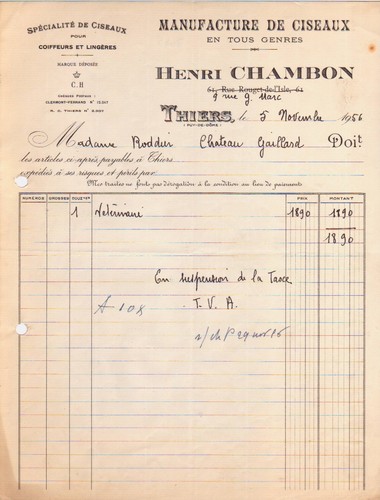 SPÉCIALITÉ DE CISEAUX
POUR
COIFFEURS ET LINGÈRES
MARQUE DÉPOSÉE
C.H
CHÈQUES POSTAUX :
CLERMONT-FERRAND N° 12.217
R. C. THIERS N° 2.007
MANUFACTURE DE CISEAUX
EN TOUS GENRES
HENRI CHAMBON
61, Rue Rouget-de-l'Isle, 61
9 rue g. Marc
THIERS, le 5 Novembre 1956
(PUY-DE-DÔME)
Madame Roddier Château Gaillard Doit
les articles ci-après payables à Thiers
expédiés à ses risques et périls par
Mes traites ne font pas dérogation à la condition au lieu de paiement
NUMÉROS GROSSES DOUZnes PRIX MONTANT
1 vétérinaire 1890 1890
1890
En suspension de la Taxe
A 108 T.V.A.